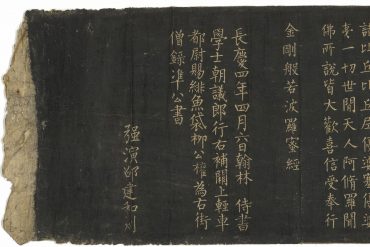 諸比丘比丘尼優婆塞優婆
夷一切世間天人阿脩羅聞
佛所說皆大歡喜信受奉行
金剛般若波羅蜜經
長慶四年四月六日翰林 侍書
學士朝議郎行右補闕上輕車
都尉賜緋魚袋柳公權為右街
僧錄準公書
强演邵建和刻